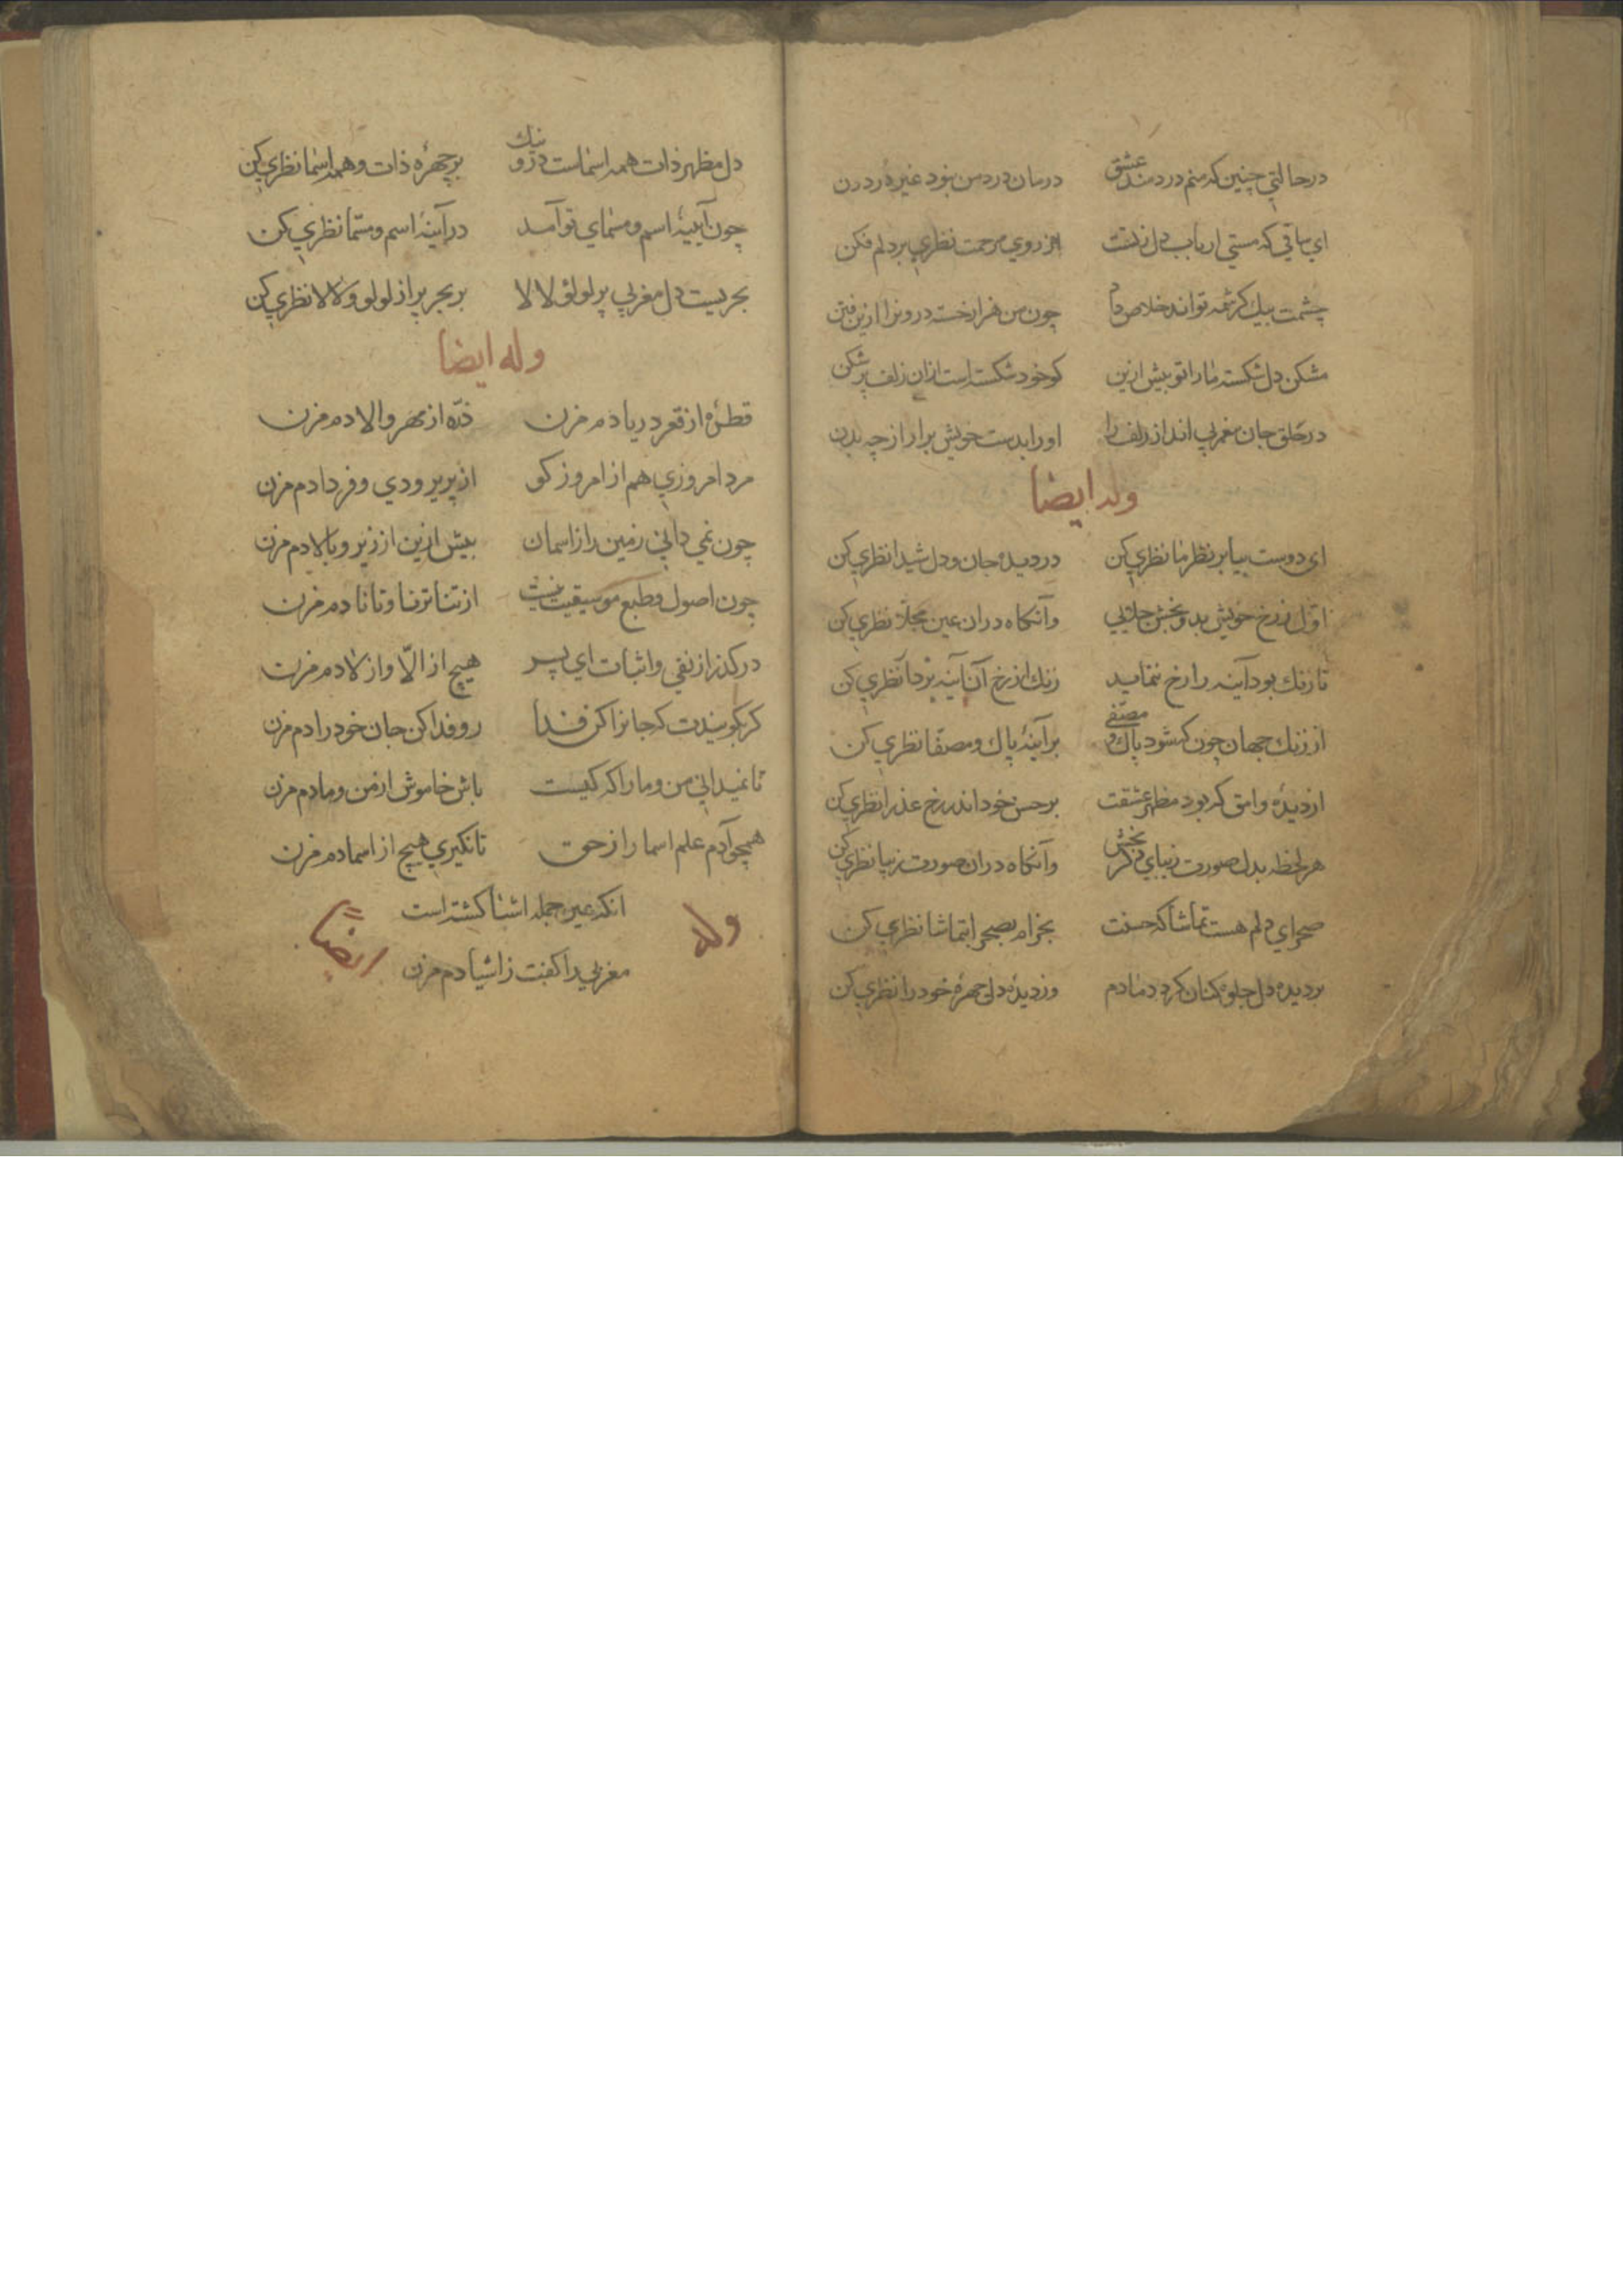 در حالتي چنین که منم دردمند عشق درمان درد من نبود غیر درد دن
اي ساقي که مستي ارباب دل زتست از روي مرحمت نظري بر دلم فکن
چشمت بیك کرشمه تواند خلاص داد چون من هزار خسته درونرا ازین فتن
مشکن دل شکسته ما را تو بیش ازین کو خود شکسته است ازان زلف پر شکن
در حلق جان مغربي انداز زلف را او را بدست خویش برار از چه بدن
وله ایضا
ای دوست بیا بر نظر ما نظري کن در دیده جان و دل شیدا نظري کن
اول ز رخ خویش بدو بخش جلائي وآنکاه دران عین مجلا نظري کن
تا زنك بود آینه را رخ ننماید زنك از رخ آن آینه بزدا نظري کن
از زنك جهان چون که شود پاك و مصفی بر آینهٔ پاك و مصفا نظري کن
از دیدهٔ وامق که بود مظهر عشقت بر حسن خود اندر رخ عذرا نظري کن
هر لحظه بدل صورت زیباي دکر بخش وآنکاه دران صورت زیبا نظري کن
صحراي دلم هست تماشاکه حسنت بخرام بصحرا بتماشا نظري کن
بر دیده دل جلوه کنان کرد دمادم وز دیدهٔ دل چهرهٔ خود را نظري کن
دل مظهر ذات همه اسماست درو نیك بر چهرهٔ ذات و همه اسما نظري کن
چون آیینهٔ اسم و مسماي تو آمد در آینهٔ اسم و مسما نظري کن
بحریست دل مغربي پر لولؤ لالا بر بحر پر از لولو و لالا نظري کن
وله ایضا
قطرهٔ از قعر دریا دم مزن ذره از مهر والا دم مزن
مرد امروزي هم از امروز کو از پریر و دي و فردا دم مزن
چون نمي داني زمین را ز اسمان بیش ازین از زیر و بالا دم مزن
چون اصول و طبع موسیقیت نیست از تنا ترنا و تانا دم مزن
درکذر از نفي و اثبات اي پسر هیچ از الّا و از لا دم مزن
کر بکویندت که جانرا کن فدا رو فدا کن جان خود را دم مزن
تا نمیداني من و ما را که کیست باش خاموش از من و ما دم مزن
همچو آدم علم اسما را ز حق تا نکیري هیچ از اسما دم مزن
انکه عین جمله اشیا کشته است
مغربي را کفت ز اشیا دم مزن
وله ایضاً